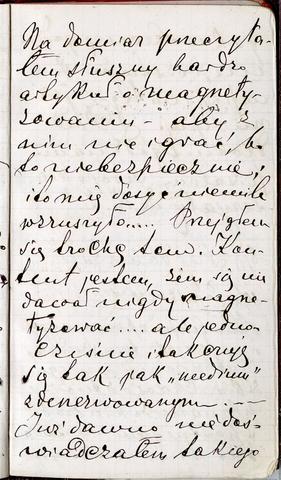 Na domiar przeczyta-
łem słuszny bardzo
artykuł o magnety-
zowaniu – aby z
nim nie igrać, bo
to niebezpiecznie;
i to mię dosyć niemile
wzruszyło.... Przejąłem
się trochę tem. Kon-
tent jestem, żem się nie
dawał nigdy magne-
tyzować.... ale jedno-
cześnie i tak czuję
się tak jak „medium"
zdenerwowanym. —
Już dawno nie doś-
wiadczałem takiego